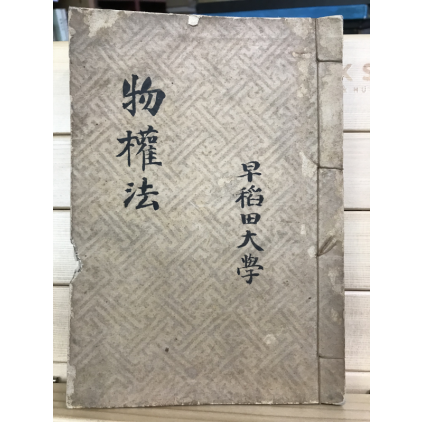 物權法
早稻田大學